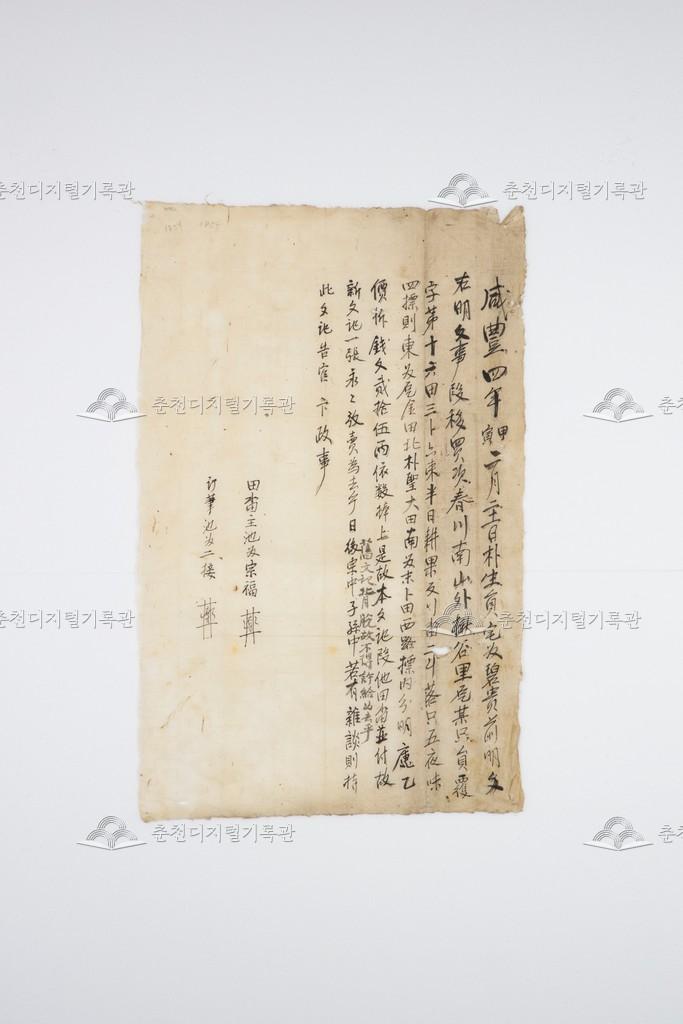 咸豊四年甲寅二月二十日朴生員宅奴碧貴前明文
右明文事段移買次春川南山外 谷里 員覆
字第十六田三卜六束半日耕果 畓二斗落只五夜味
四標則東 金田北朴聖大田南 卜田西路標內分明 乙
價折錢文貳拾伍兩依數捧上是故本文記段他田畓並付故
舊文記背脫故不得許給 去乎
新文記一張永〻放賣為去乎日後宗中子孫中若有雜談則持
此文記告官卞政事
田畓主池奴宗福
訂筆池奴二接
춘천디지털기록관
춘천디지털기록관
춘천디지털기록관
춘천디지털
춘천디지털기록관
춘천디지털기록관
춘천디지털기록관
춘천디지털